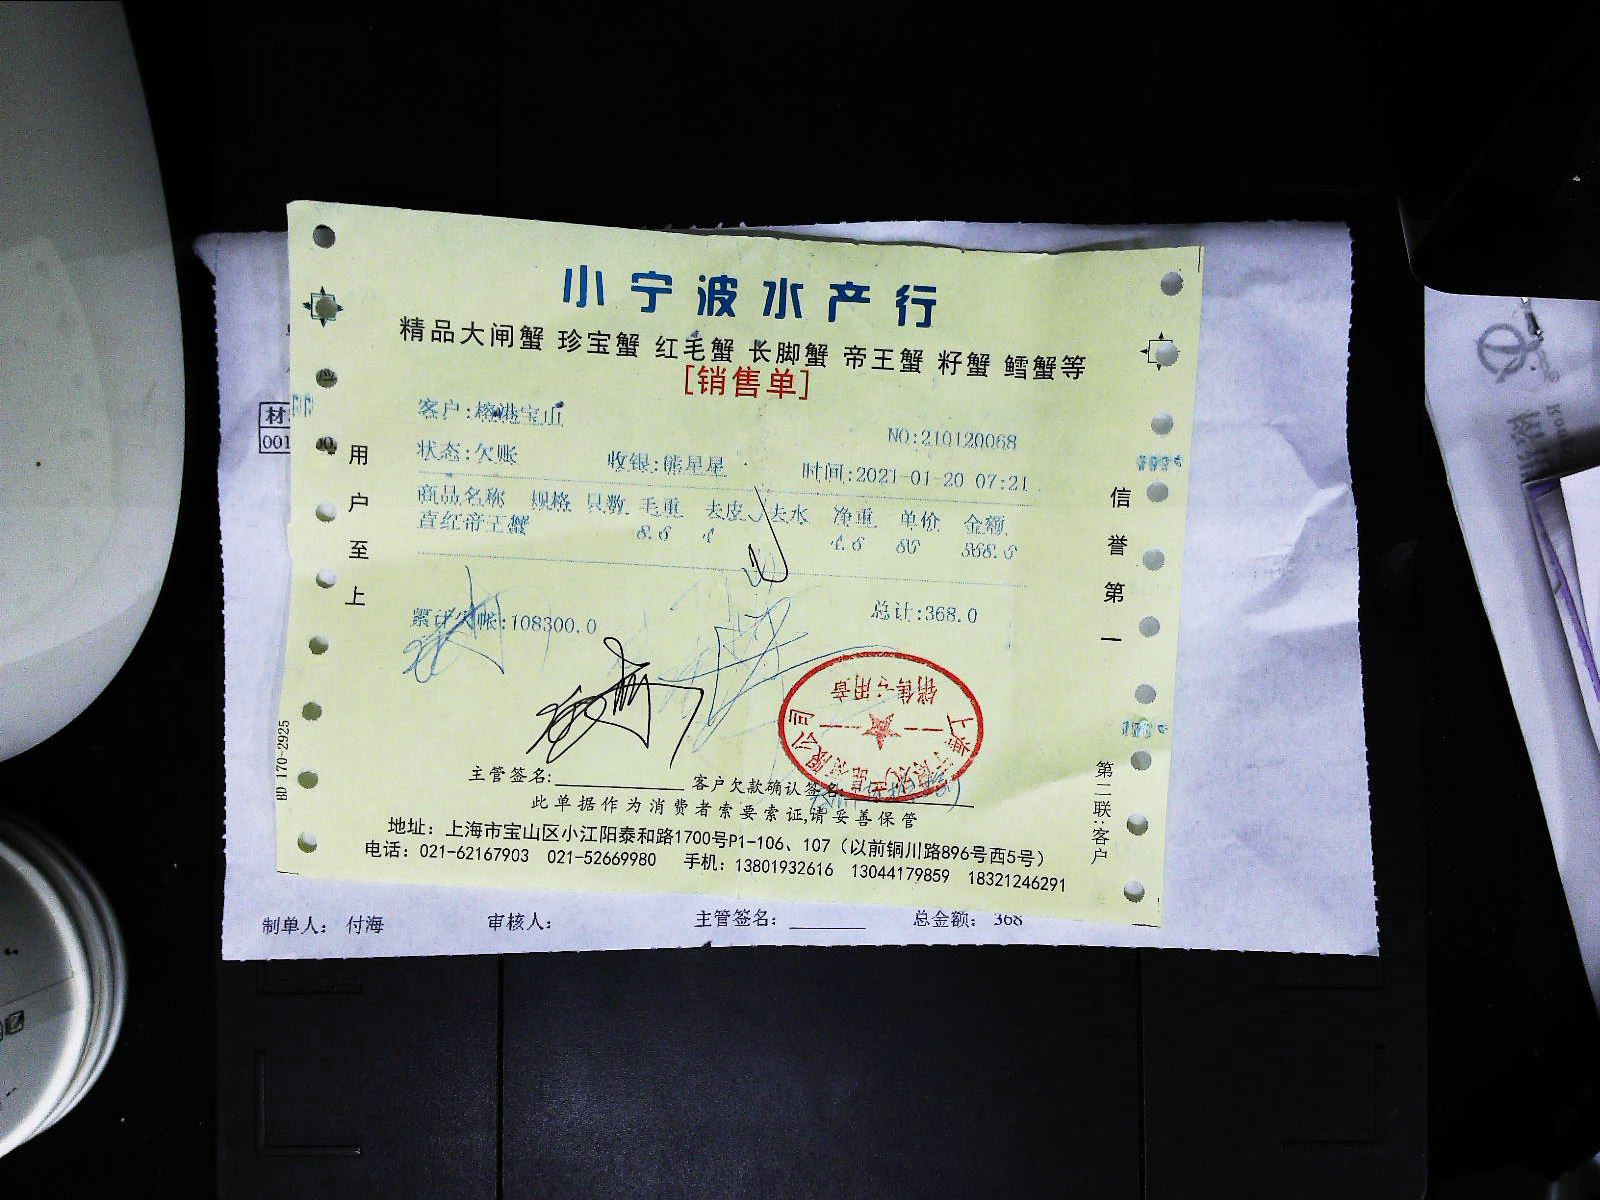 小宁波水产行
精品大闸蟹 珍宝蟹 红毛蟹 长脚蟹 帝王蟹 籽蟹 鳕蟹等
[销售单]
客户:榕港宝山
NO:210120068
状态:欠账 收银:熊星星 时间:2021-01-20 07:21
商品名称 规格 只数 毛重 去皮 去水 净重 单价 金额
直红帝王蟹 8.6 4 4.6 80 368.0
累计欠帐:108300.0 总计:368.0
用户至上
信誉第一
销售专用章
主管签名: 客户欠款确认签名
此单据作为消费者索要索证,请妥善保管
地址：上海市宝山区小江阳泰和路1700号P1-106、107（以前铜川路896号西5号）
电话：021-62167903 021-52669980 手机：13801932616 13044179859 18321246291
第二联:客户
BD 170-2925
材
001
制单人： 付海 审核人： 主管签名： 总金额： 368